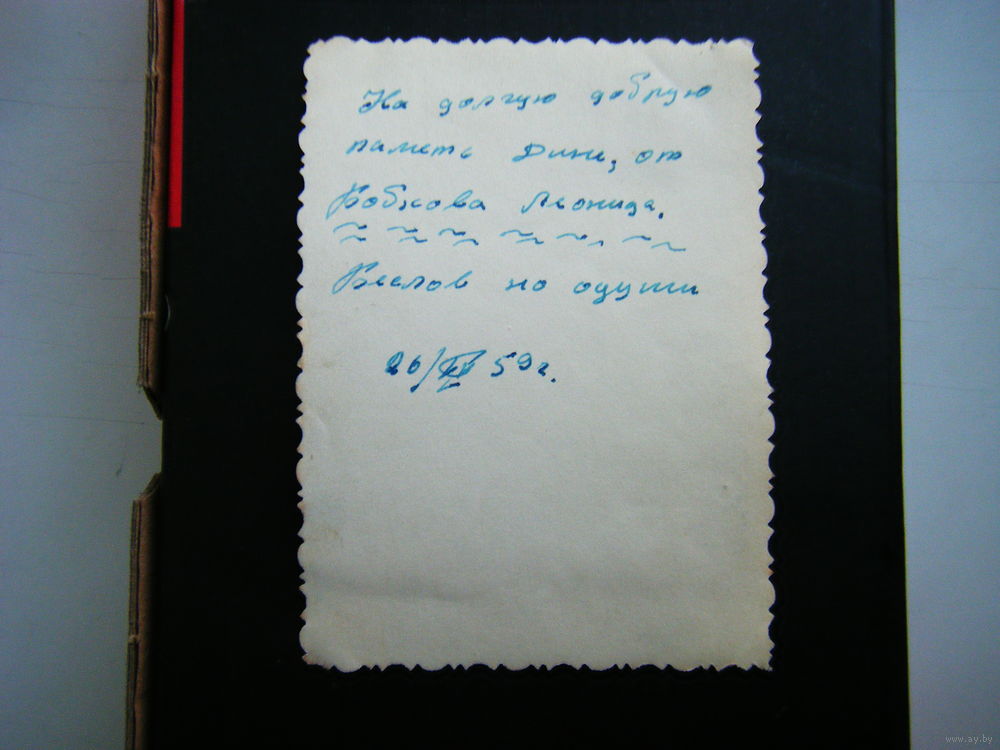 На долгую добрую
паметь Дине, от
Бобкова Леонида.
но
26/ 59г.
www.ay.by